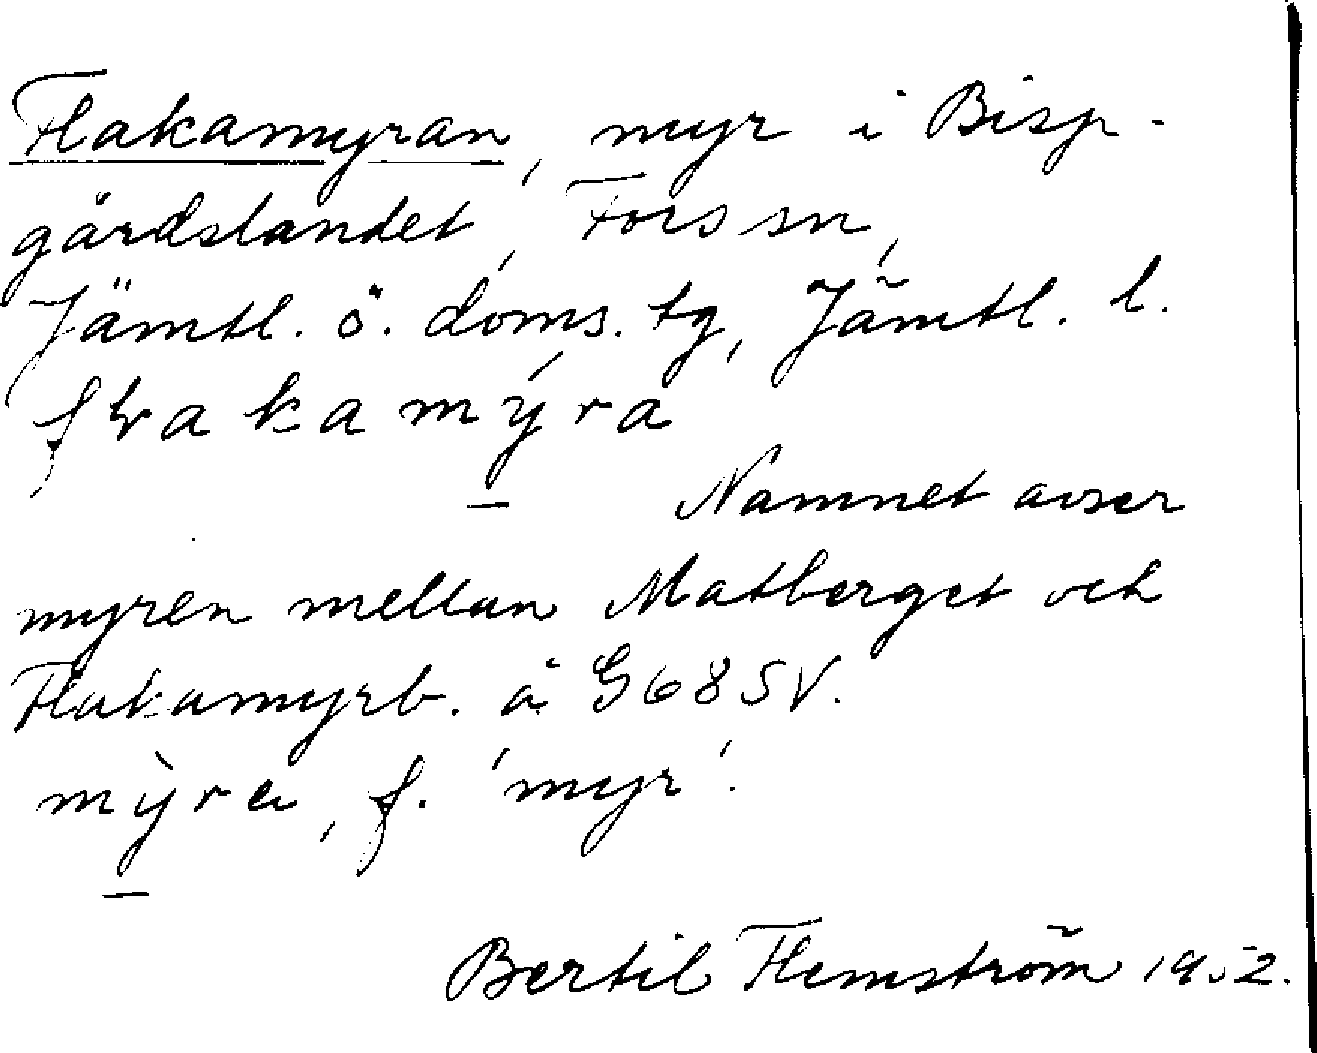 Flakamyran, myr i Bisp-
gårdslandet, Fors sn,
Jämtl. ö. doms. tg, Jämtl. l.
flakamýra
Namnet avser
myren mellan Matberget och
Flakamyrb. å G68SV.
mỳra, f. 'myr'.
Bertil Flemström 1952.